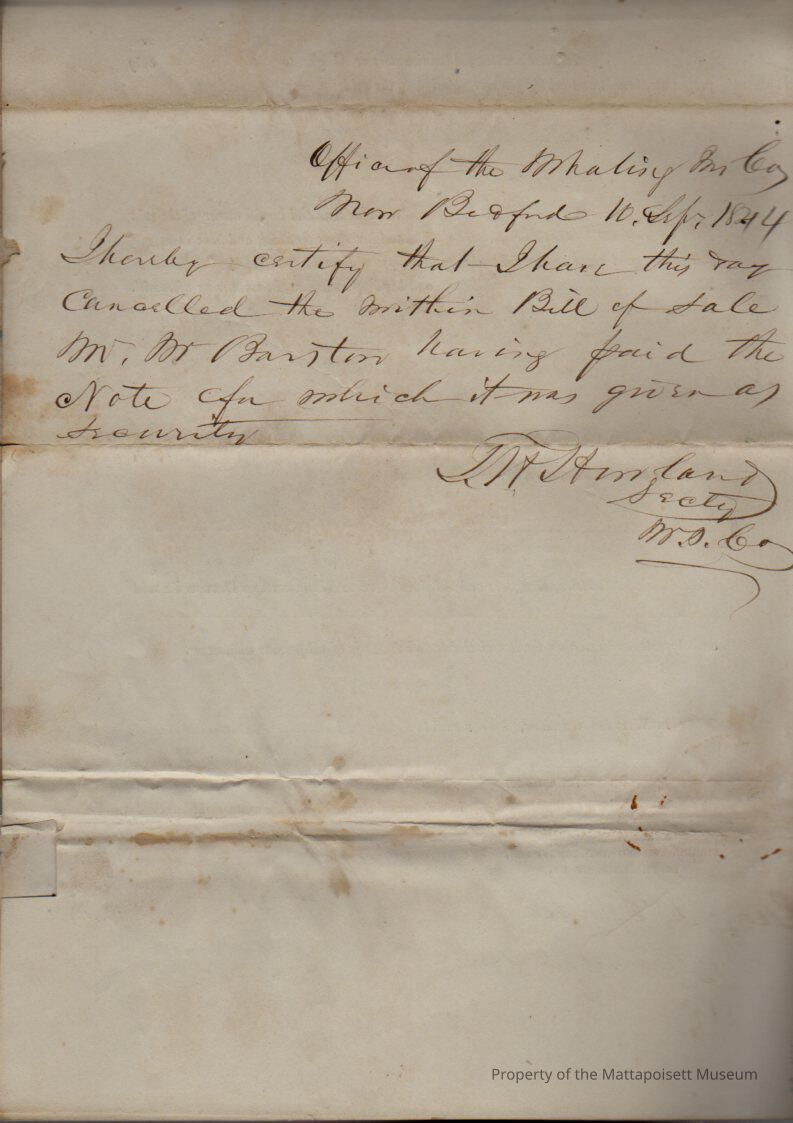 Office of the Whaling Ins Co
New Bedford 10. Sept. 1844
I hereby certify that I have this day
Cancelled the within Bill of Sale
Mr. W Barstow having paid the
Note for which it was given as
security
Howland
Secty
W.I. Co
Property of the Mattapoisett Museum